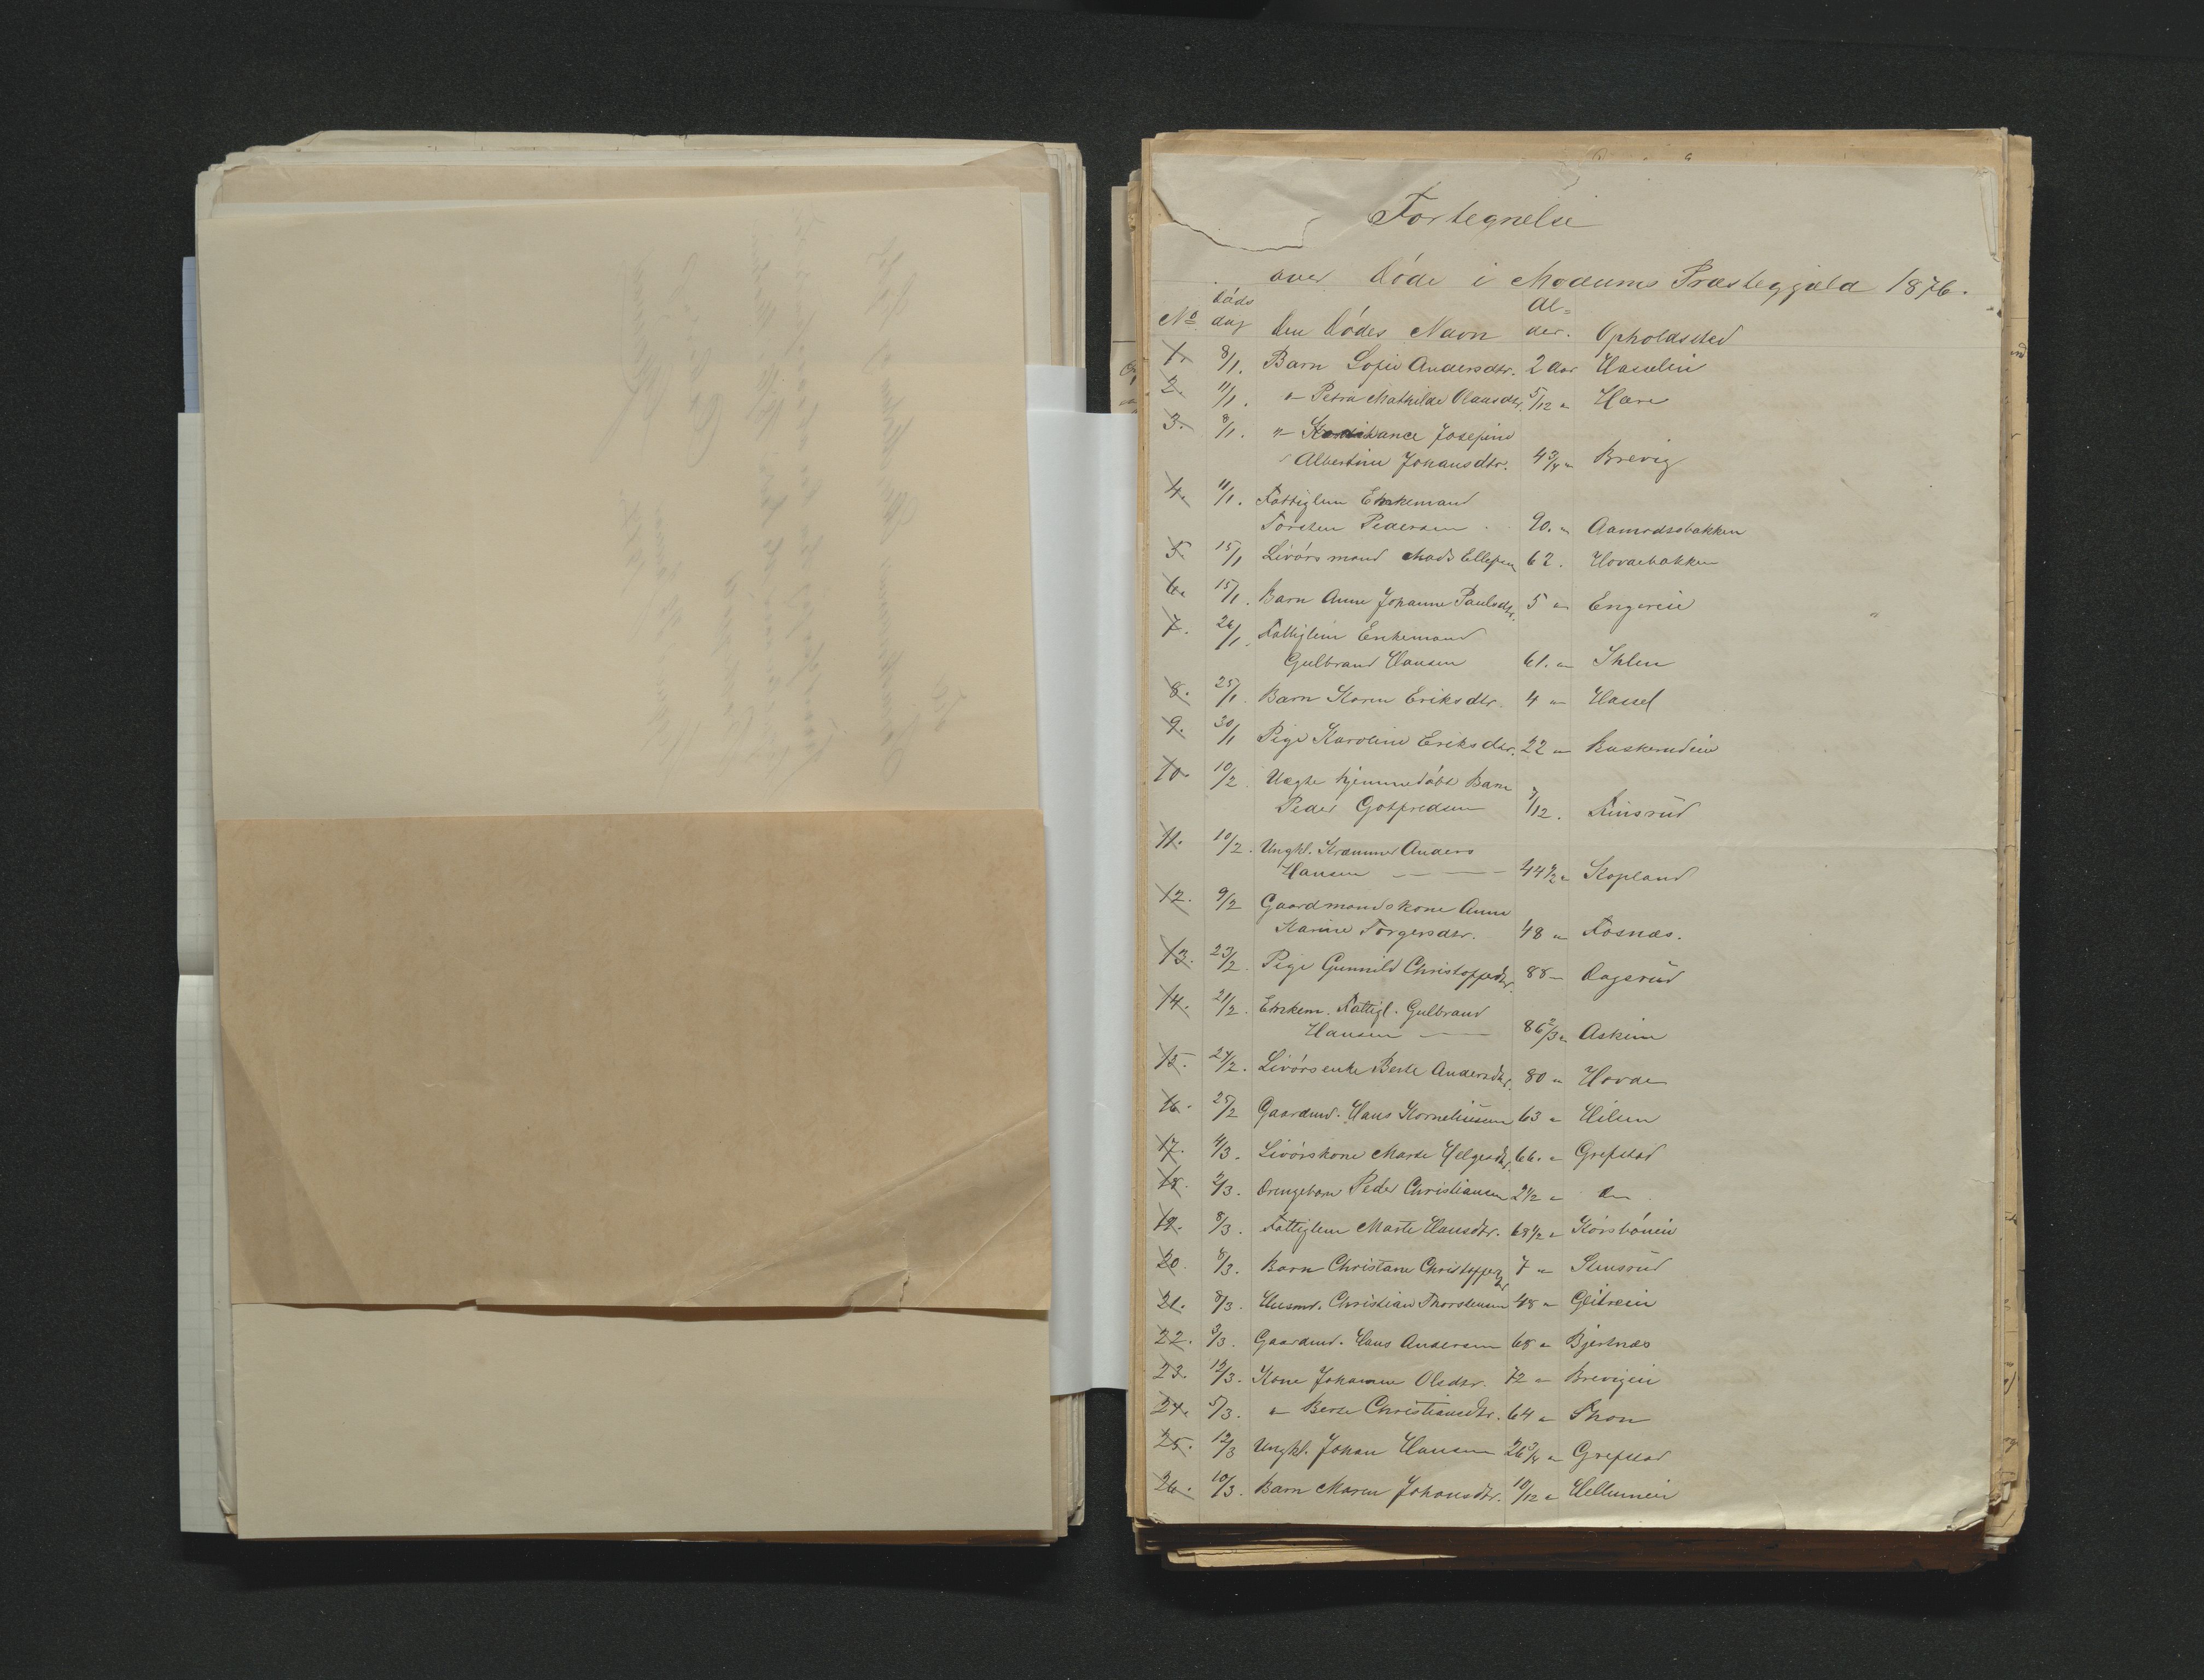 Fortegnelse
over Døde i Modums Præstegjæld 1876.
No Døds dag Den Dødes Navn Al= der. Opholdssted
1. 8/1. Barn Sofie Andersdtr. 2 Aar Hasselein
2. 11/1. " Petra Mathilde Olausdtr. 5/12 " Hære
3. 8/1. " Konstance Josefine
Albertine Johansdtr. 4 3/4 " Brevig
4. 11/1. Fattiglem Enkemand
Torsten Pedersen 90. " Aamodtsbakken
5 15/1 Livørsmand Mads Ellefsen 62. Hovdebakken
6. 15/1. Barn Anne Johanne Paulsdtr. 5 " Engerie
7. 26/1. Fattiglem Enkemand
Gulbrand Hansen 61. " Ihlen
8. 25/1. Barn Karen Eriksdtr. 4 " Hassel
9. 30/1 Pige Karoline Eriksdtr. 22 " Buskerudeie
10. 10/2. Uægte hjemmedøbt Barn
Peder Gotfredsen 7/12. Finsrud
11. 10/2. Ungkl. Kræmmer Anders
Hansen — — 44 1/2 " Kopland
12. 9/2 Gaardmandskone Anne
Karine Torgersdtr. 48 " Fosnæs.
13. 23/2. Pige Gunnild Christoffersdtr. 88 — Dagsrud
14. 21/2. Enkem. Fattigl. Gulbrand
Hansen — 86 2/3 " Askim
15. 24/2. Livørsenke Berte Andersdtr. 80 " Hovde
16. 25/2 Gaardmd. Hans Korneliussen 63 " Hilen
17. 4/3. Livørskone Marte Helgesdtr. 66. " Grefstad
18. 2/3. Drengebarn Peder Christiansen 2 1/2 " Do
19. 8/3. Fattiglem Marte Hansdtr. 68 1/2 " Korsbøneie
20. 8/3. Barn Christiane Christoffersdtr 7 " Stensrud
21. 8/3. Husmd. Christian Thorstensen 48 " Glitreeie
22. 3/3. Gaardmd. Hans Andersen 68 " Bjertnæs
23. 12/3. Kone Johanne Olsdtr. 72 " Brevigeie
24. 5/3. " Berte Christiansdtr. 64 " Thon
25. 12/3 Ungkl. Johan Hansen 26 3/4 " Grefstad
26. 10/3. Barn Maren Johansdtr. 10/12 " Hellumeie